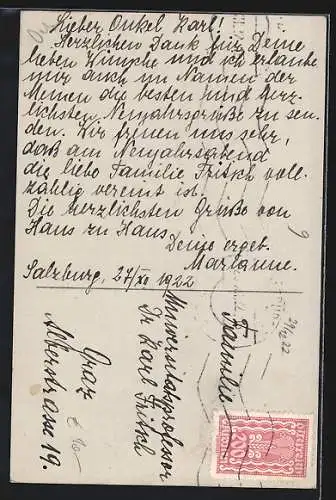 Lieber Onkel Karl!
Herzlichen Dank für Deine
lieben Wünsche und ich erlaube
mir auch im Namen der
Meinen die besten und herz-
lichsten Neujahrsgrüße zu sen-
den. Wir freuen uns sehr,
daß am Neujahrsabend
die liebe Familie Fritsch voll-
zählig vereint ist.
Die herzlichsten Grüße von
Haus zu Haus
Deine ergeb.
Marianne.
Salzburg, 27/XII 1922
Familie
Universitätsprofessor
Dr Karl Fritsch
Graz
Alberstrasse 19.